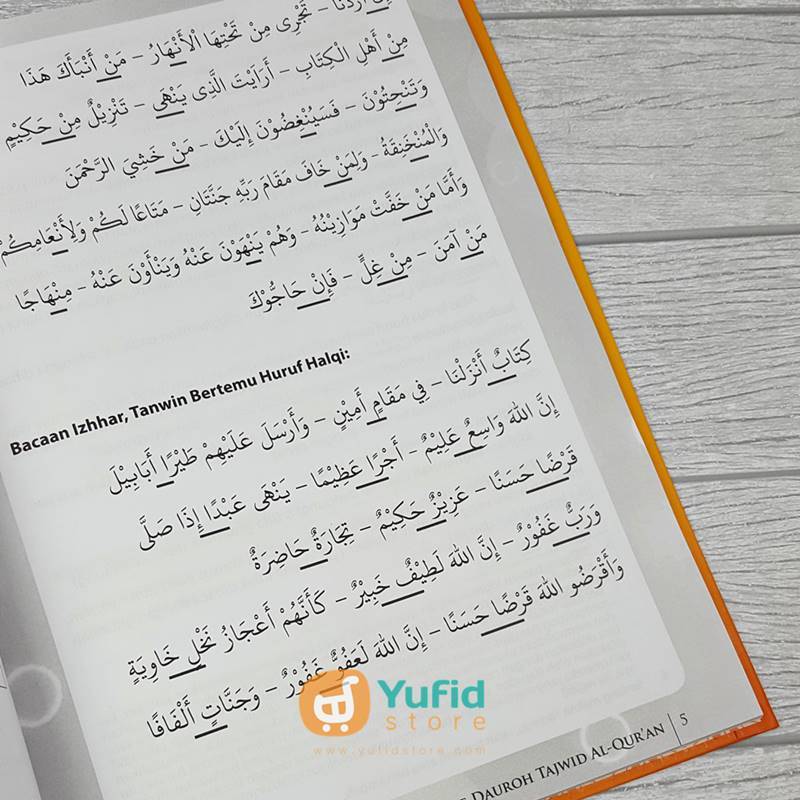 إِنْ أَرَدْنَا – تَجْرِى مِنْ تَحْتِهَا الْأَنْهَارُ – مَنْ أَنْبَأَكَ هَذَا
مِنْ أَهْلِ الْكِتَابِ – أَرَايْتَ الَّذِى يَنْهَى – تَنْزِيْلٌ مِنْ حَكِيْمٍ
وَتَنْحِتُوْنَ – فَسَيُنْغِضُوْنَ إِلَيْكَ – مَنْ خَشِيَ الرَّحْمٰنَ
وَالْمُنْخَنِقَةُ – وَلِمَنْ خَافَ مَقَامَ رَبِّهِ جَنَّتَانِ – مَتَاعًا لَكُمْ وَلِأَنْعَامِكُمْ
وَأَمَّا مَنْ خَفَّتْ مَوَازِيْنُهُ – وَهُمْ يَنْهَوْنَ عَنْهُ وَيَنْأَوْنَ عَنْهُ – مِنْهَاجًا
مَنْ آمَنَ – مِنْ غِلٍّ – فَإِنْ حَاجُّوْكَ
Bacaan Izhhar, Tanwin Bertemu Huruf Halqi:
كِتَابٌ أَنْزَلْنَا – فِي مَقَامٍ أَمِيْنٍ – وَأَرْسَلَ عَلَيْهِمْ طَيْرًا أَبَابِيْلَ
إِنَّ اللهَ وَاسِعٌ عَلِيْمٌ – أَجْرًا عَظِيْمًا – يَنْهَى عَبْدًا إِذَا صَلَّى
قَرْضًا حَسَنًا – عَزِيْزٌ حَكِيْمٌ – تِجَارَةٌ حَاضِرَةٌ
وَرَبٌّ غَفُوْرٌ – إِنَّ اللهَ لَطِيْفٌ خَبِيْرٌ – كَأَنَّهُمْ أَعْجَازُ نَخْلٍ خَاوِيَةٍ
وَأَقْرَضُو اللهَ قَرْضًا حَسَنًا – إِنَّ اللهَ لَعَفُوٌّ غَفُوْرٌ – وَجَنَّاتٍ أَلْفَافًا
Yufid
store
www.yufidstore.com
Dauroh Tajwid Al-Qur'an | 5